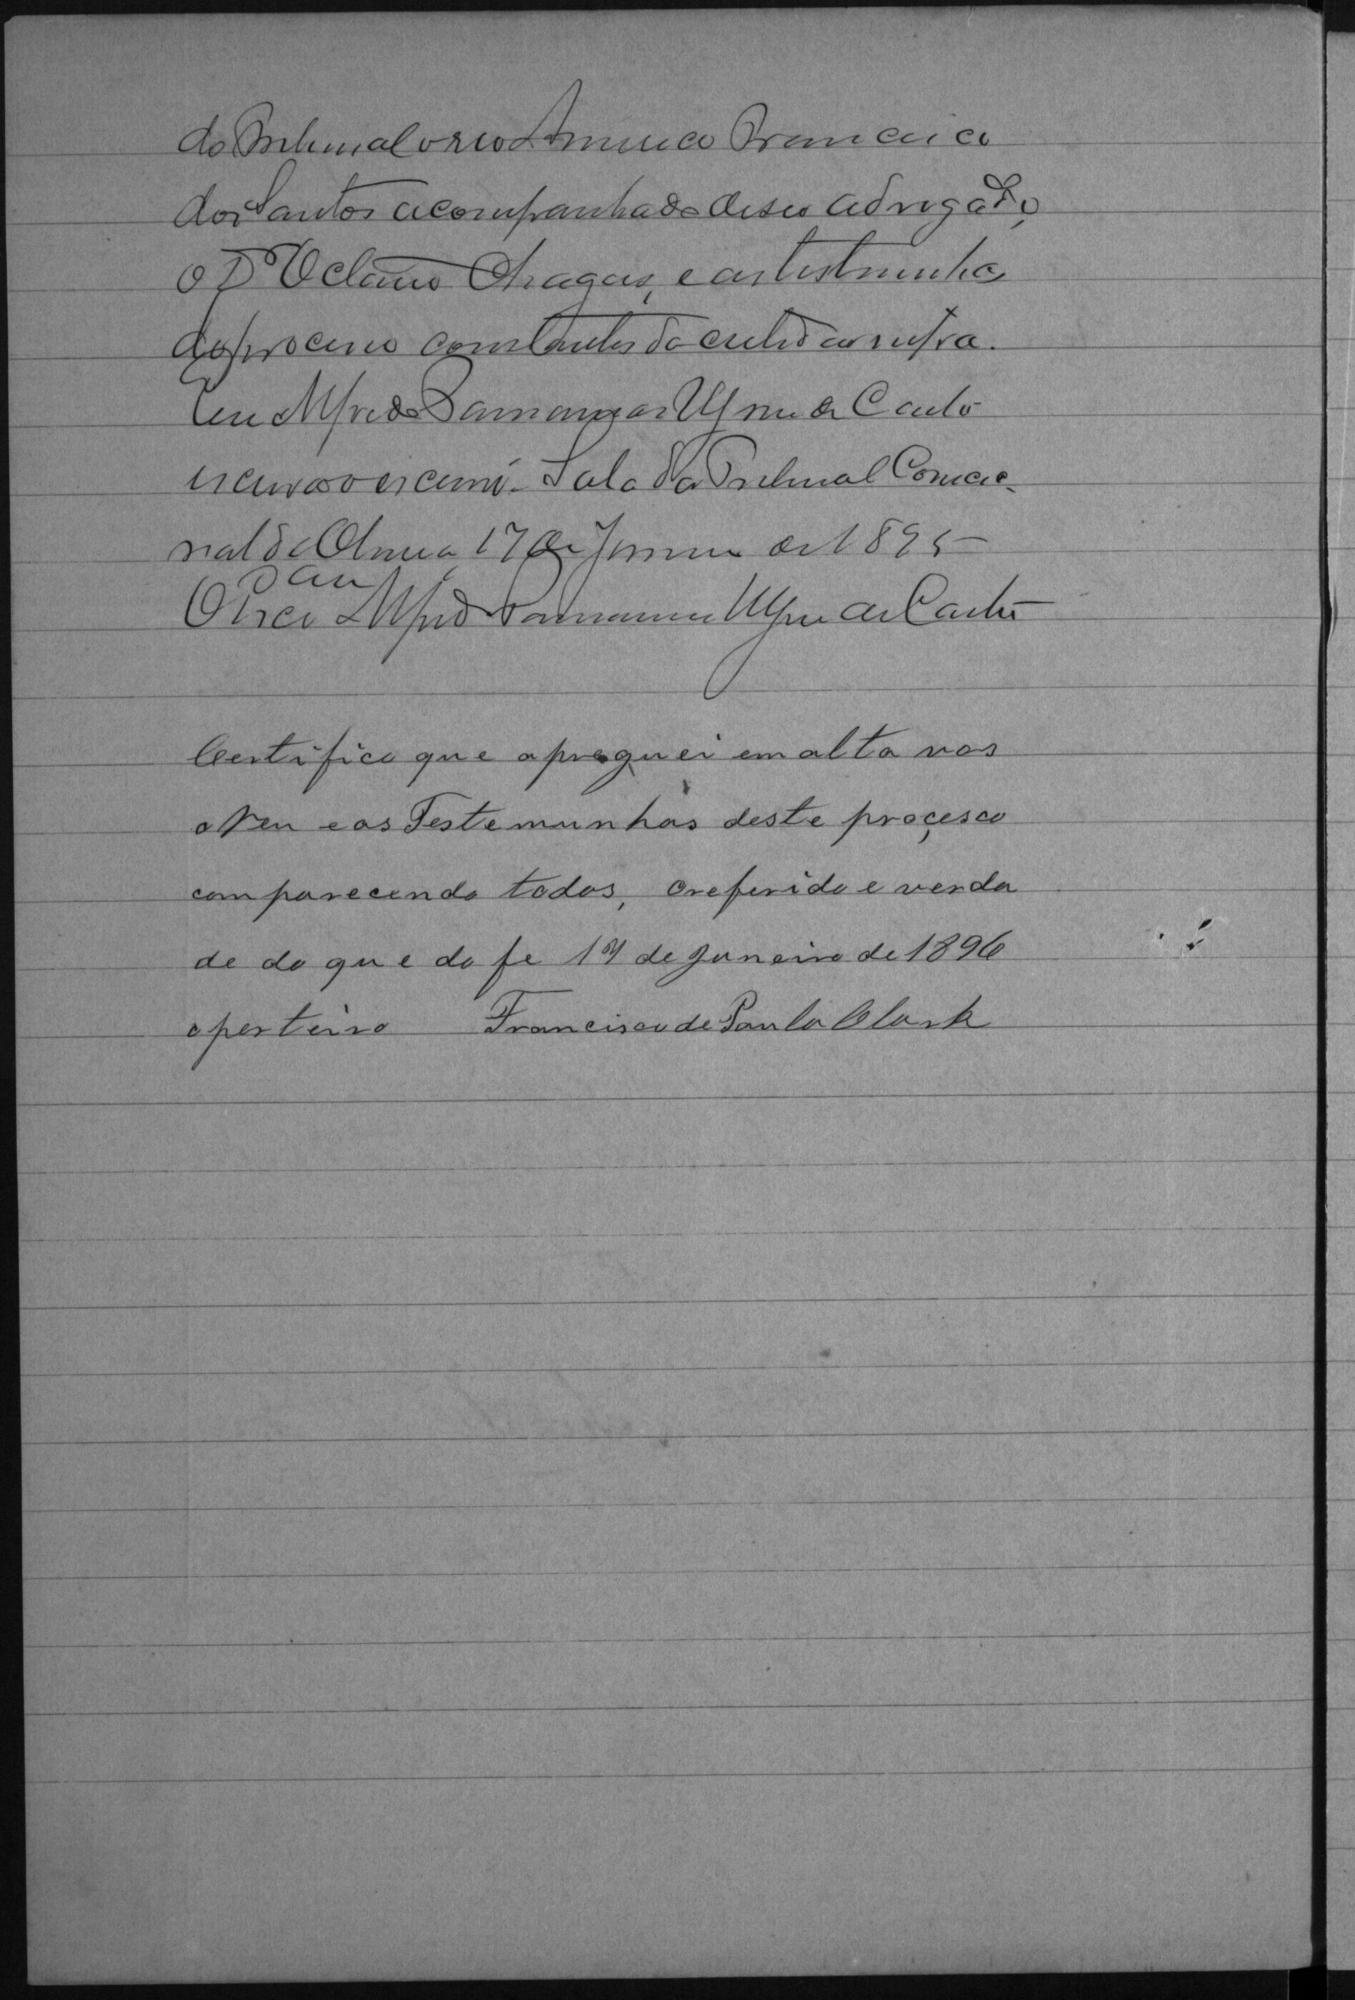 do Tribunal o reo Americo Francisco
dos Santos acompanhado de seu advogado,
o Dr Octavio Chagas, e as testemunhas
do processo constantes da certidão supra.
Eu Alfredo de Castro
escrivão o escrevi. Sala do Tribunal Correcio-
nal da 17 de Janeiro de 1895
O Escrivão Alfredo de Castro
Certifico que apreguei em alta vos
o Reu e as Testemunhas deste proçesco
comparecendo todos, o referido e verda
de do que do fe 17 de Janeiro de 1896
o porteiro Francisco de Paula Clark